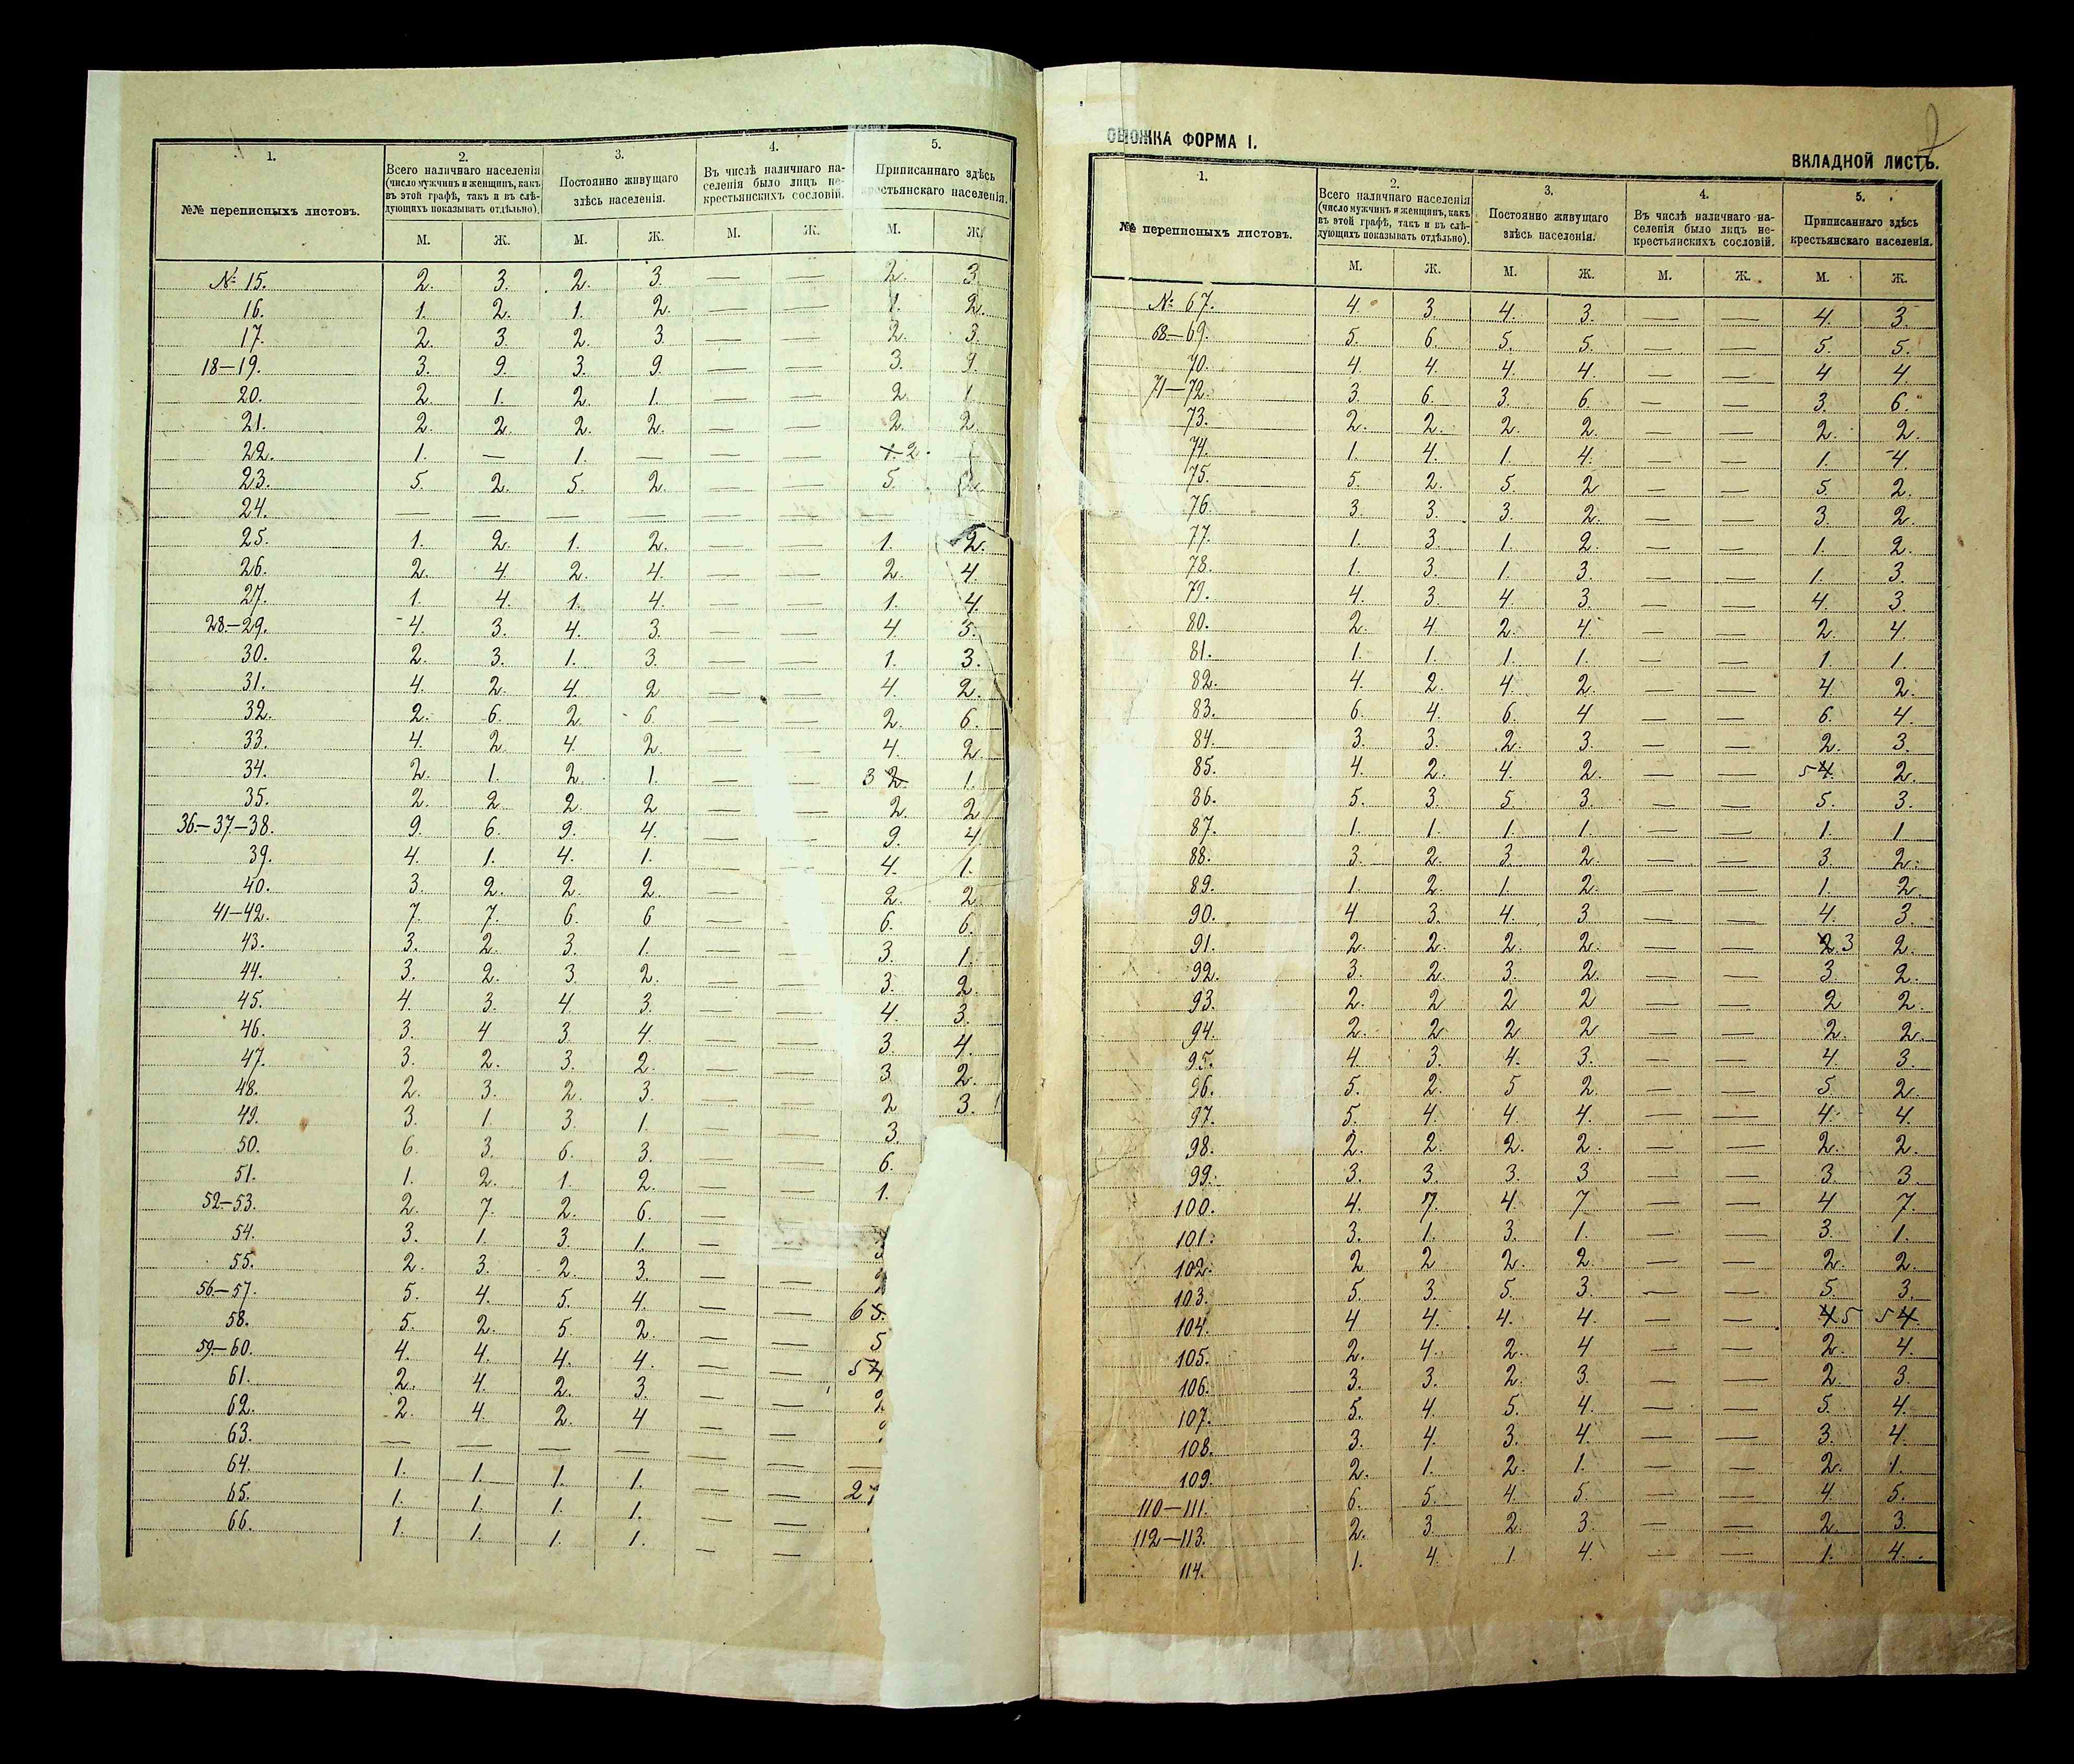 1.
2.
3.
4.
5.
№№ переписныхъ листовъ.
Всего наличнаго населенія
(число мужчинъ и женщинъ, какъ
въ этой графѣ, такъ и въ слѣ-
дующихъ показывать отдѣльно).
Постоянно живущаго
здѣсь населенія.
Въ числѣ наличнаго на-
селенія было лицъ не-
крестьянскихъ сословій.
Приписаннаго здѣсь
крестьянскаго населенія.
М. Ж. М. Ж. М. Ж. М. Ж.
№ 15. 2. 3. 2. 3. — — 2. 3
16. 1. 2. 1. 2. — — 1. 2.
17. 2. 3. 2. 3 — — 2. 3.
18—19. 3. 9. 3. 9. — — 3. 9.
20. 2. 1. 2. 1. — — 2. 1.
21. 2. 2. 2. 2. — — 2. 2.
22. 1. — 1. — — — 1. 2.
23. 5. 2. 5. 2. — — 5. 2.
24. — — — — — —
25. 1. 2. 1. 2. — — 1. 2.
26. 2. 4. 2. 4. — — 2. 4.
27. 1. 4. 1. 4. — — 1. 4.
28.—29. 4. 3. 4. 3. — — 4. 3.
30. 2. 3. 1. 3. — — 1. 3.
31. 4. 2. 4. 2 — — 4. 2.
32. 2. 6. 2. 6. — — 2. 6.
33. 4. 2. 4. 2. — — 4. 2.
34. 2. 1. 2. 1. — — 3 2. 1.
35. 2. 2. 2. 2 — — 2. 2
36.—37—38. 9. 6. 9. 4. — — 9. 4.
39. 4. 1. 4. 1. — 4. 1.
40. 3. 2. 2. 2. — 2. 2.
41—42. 7. 7. 6. 6 — 6. 6.
43. 3. 2. 3. 1. — — 3. 1.
44. 3. 2. 3. 2. — — 3. 2.
45. 4. 3. 4 3. — — 4. 3.
46. 3. 4 3 4. — — 3. 4.
47. 3. 2. 3. 2. — — 3 2.
48. 2. 3. 2. 3. — — 2 3.
49. 3. 1. 3. 1. — — 3.
50. 6. 3. 6. 3. — — 6.
51. 1. 2. 1. 2. — — 1.
52—53. 2. 7. 2. 6. — —
54. 3. 1. 3. 1. — —
55. 2. 3. 2. 3. — —
56—57. 5. 4. 5. 4. — — 6 5.
58. 5. 2. 5. 2. — — 5
59—60. 4. 4. 4. 4. — — 5 4
61. 2. 4. 2. 3. — — 2
62. 2. 4. 2. 4 — —
63. — — — — — — —
64. 1. 1. 1. 1. — — 2
65. 1. 1. 1. 1. — —
66. 1. 1. 1. 1. — —
ФОРМА I.
ВКЛАДНОЙ ЛИСТЪ.
1.
2.
3.
4.
5.
№№ переписныхъ листовъ.
Всего наличнаго населенія
(число мужчинъ и женщинъ, какъ
въ этой графѣ, такъ и въ слѣ-
дующихъ показывать отдѣльно).
Постоянно живущаго
здѣсь населенія.
Въ числѣ наличнаго на-
селенія было лицъ не-
крестьянскихъ сословій.
Приписаннаго здѣсь
крестьянскаго населенія.
М. Ж. М. Ж. М. Ж. М. Ж.
№ 67. 4. 3. 4. 3. — — 4. 3.
68—69. 5. 6. 5. 5. — — 5. 5.
70. 4. 4. 4. 4. — — 4 4.
71—72. 3. 6. 3. 6. — — 3. 6.
73. 2. 2. 2. 2. — — 2. 2.
74. 1. 4. 1. 4. — — 1. 4.
75. 5. 2. 5. 2 — — 5. 2.
76. 3. 3. 3. 2. — — 3. 2.
77. 1. 3. 1. 2. — — 1. 2.
78. 1. 3. 1. 3. — — 1. 3.
79. 4. 3. 4. 3. — — 4. 3.
80. 2. 4 2. 4. — — 2. 4.
81. 1. 1. 1. 1. — — 1. 1.
82. 4. 2. 4. 2. — — 4. 2.
83. 6. 4. 6. 4 — — 6. 4.
84. 3. 3. 2. 3. — — 2. 3.
85. 4. 2. 4. 2. — — 5 4. 2.
86. 5. 3. 5. 3. — — 5. 3.
87. 1. 1. 1. 1. — — 1. 1
88. 3. 2. 3. 2. — — 3. 2.
89. 1. 2. 1. 2. — — 1. 2.
90. 4 3. 4. 3 — — 4. 3.
91. 2. 2. 2. 2. — — 2. 3 2.
92. 3. 2. 3. 2. — — 3. 2.
93. 2. 2 2 2 — — 2 2.
94. 2. 2 2 2 — — 2. 2.
95. 4. 3. 4. 3. — — 4 3.
96. 5. 2. 5 2 — — 5 2.
97. 5. 4. 4. 4. — — 4. 4.
98. 2. 2. 2. 2. — — 2. 2.
99. 3. 3. 3. 3 — — 3. 3.
100. 4. 7. 4. 7 — — 4 7.
101. 3. 1. 3. 1. — — 3. 1.
102. 2 2 2. 2. — — 2. 2.
103. 5. 3. 5. 3. — — 5. 3.
104. 4 4. 4. 4. — — 4 5 5 4.
105. 2. 4. 2. 4 — — 2. 4.
106. 3. 3. 2. 3. — — 2. 3.
107. 5. 4. 5. 4. — — 5. 4.
108. 3. 4. 3. 4. — — 3. 4.
109. 2. 1. 2. 1. — — 2. 1.
110—111. 6. 5. 4. 5. — — 4. 5.
112—113. 2. 3. 2. 3. — — 2. 3.
114. 1. 4. 1. 4. — — 1. 4.